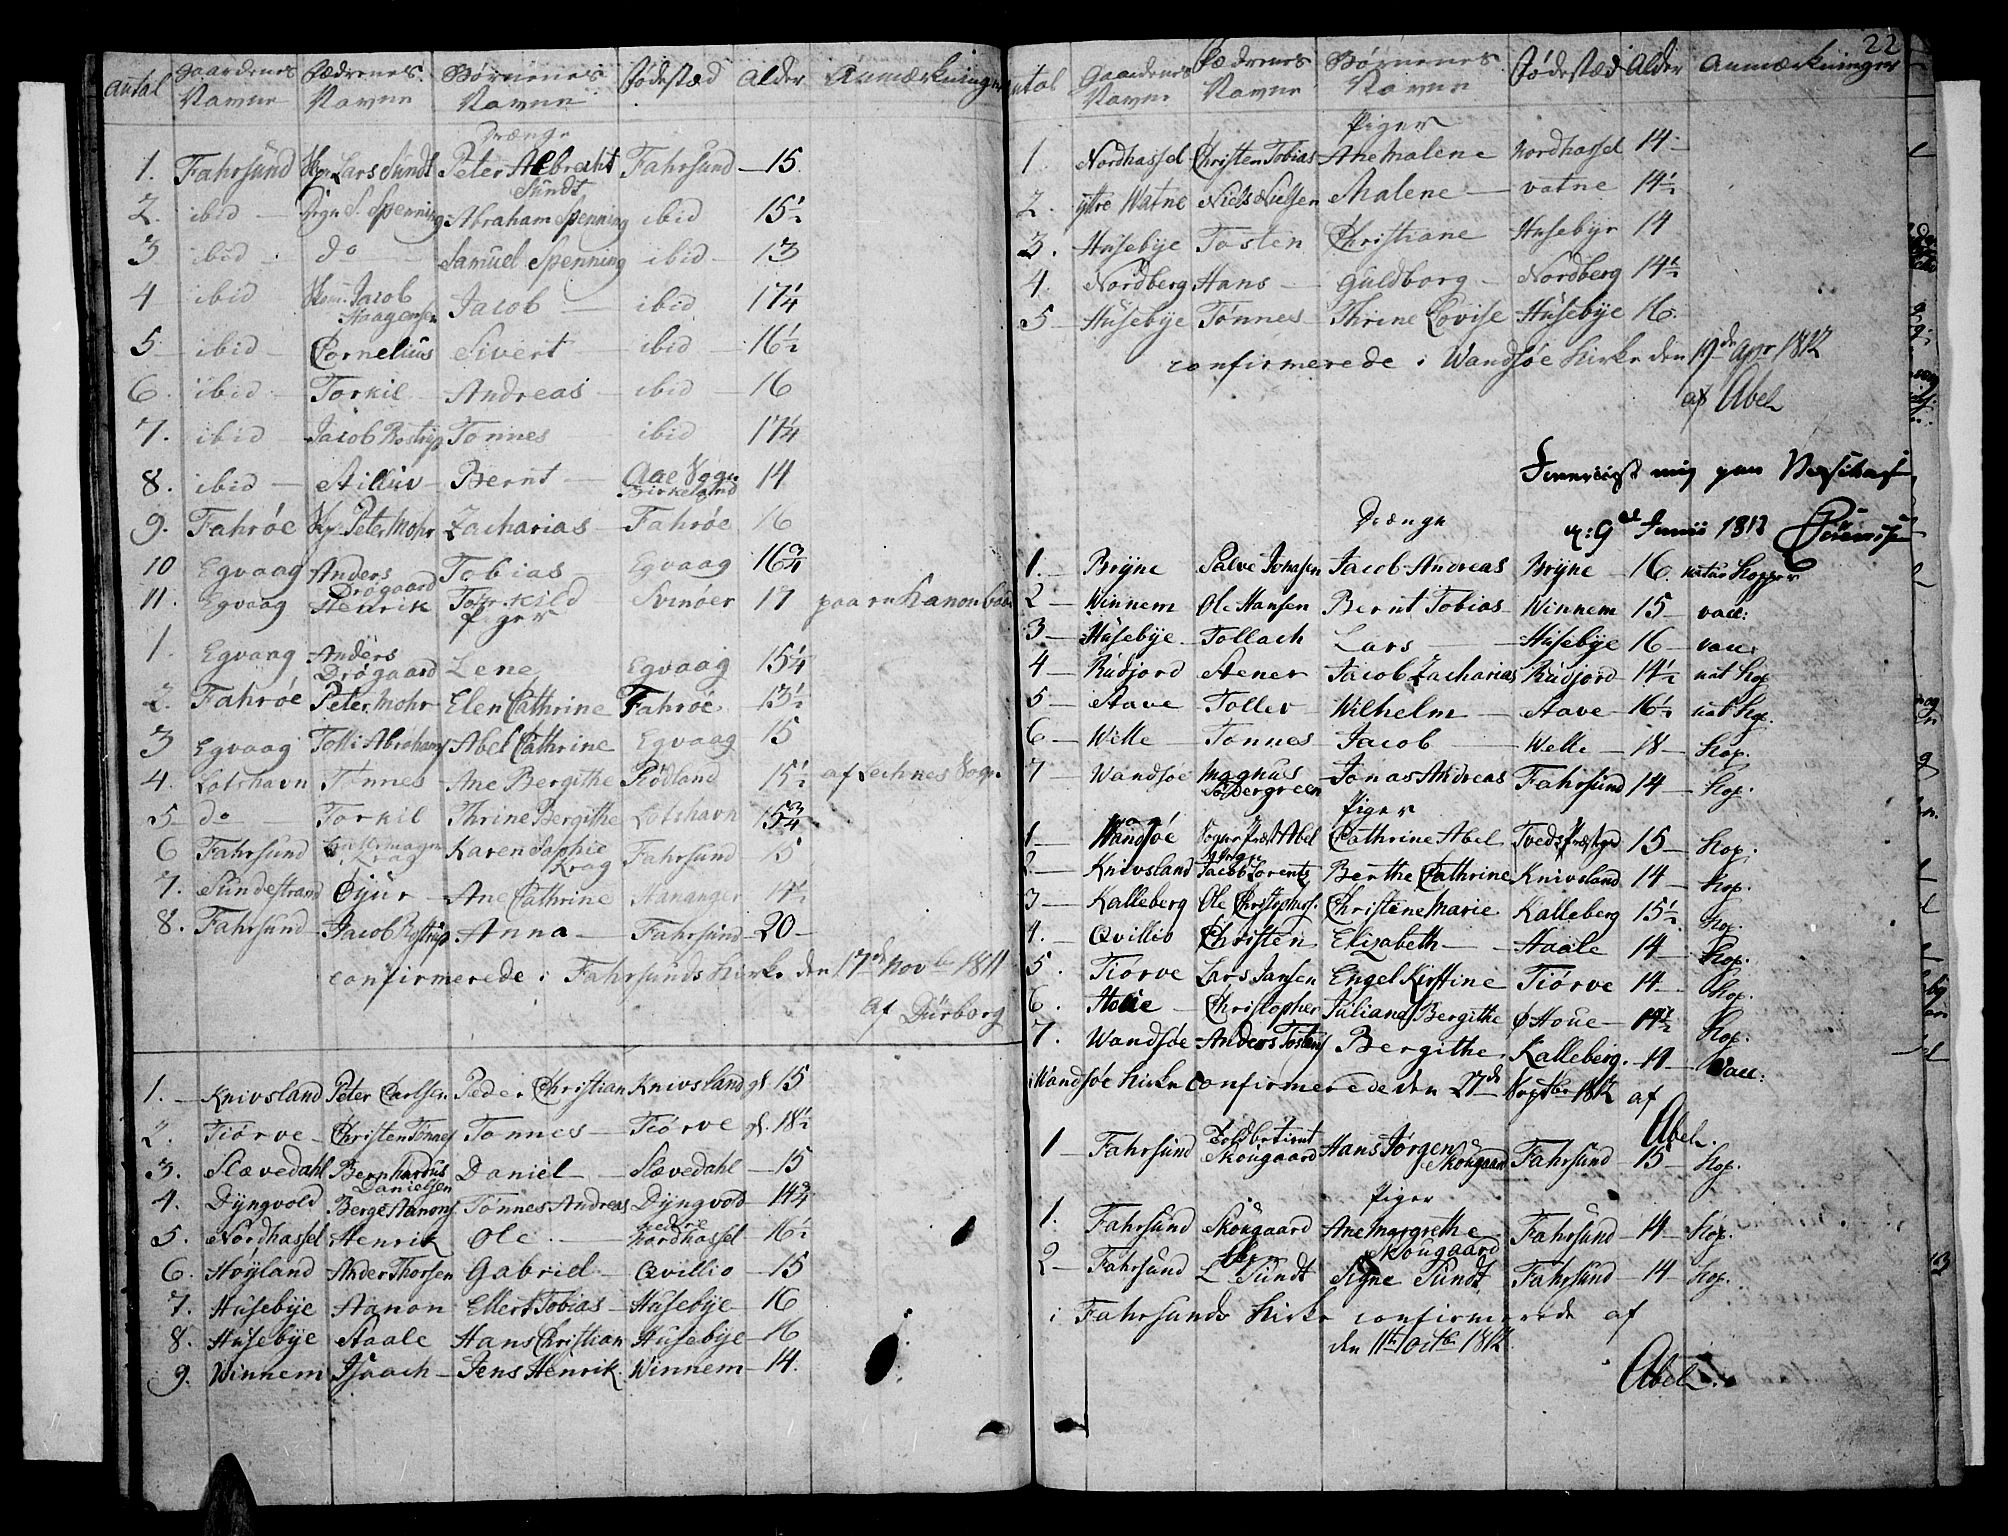 Antal Gaardenes Navne Fædrenes Navne Børnenes Navne Fødestæd Alder Anmærkninger
Drænge
1. Fahrsund Lars Sundt Peter Albrecht Sundt Fahrsund 15
2. ibid S. Spenning Abraham Spenning ibid 15½
3 ibid do Samuel Spenning ibid 13
4 ibid Jacob Haagensen Jacob ibid 17¼
5 ibid Cornelius Sivert ibid 16½
6. ibid Torkil Andreas ibid 16
7. ibid Jacob Rostrup Tonnes ibid 17¼
8. ibid Bernt Aae Sogn Birkeland 14
9. Fahrøe Peter Mohr Zacharias Fahrøe 16
10 Egvaag Anders Drøgaard Tobias Egvaag 16¾
11. Egvaag Henrik Svinøer 17 paa en Kanonbaad
Piger
1. Egvaag Anders Drøgaard Lene Egvaag 15¼
2. Fahrøe Peter Mohr Elen Cathrine Fahrøe 13½
3 Egvaag Tolli Abrahams Abel Cathrine Egvaag 15
4. Lotshavn Tønnes Ane Bergithe Rødland 15½ af Sogn
5 do Torkil Thrine Bergithe Lotshavn 15¾
6 Fahrsund Krag Karen Sophie Krag Fahrsund 15
7. Sundestrand Øyur Ane Cathrine Hananger 14½
8. Fahrsund Jacob Rostrup Anna Fahrsund 20
confirmerede i Fahrsunds Kirke den 17de Novbr 1811
af Dürborg
1. Knivsland Peter Carlsen Peder Christian Knivsland 15
2. Tiørve Christen Tønnes Tonnes Tiørve 18½
3. Slævedahl Bernhardus Danielsen Daniel Slævedahl 15
4. Dyngvold Berge Aanons Tønnes Andreas Dyngvod 14¾
5. Nordhassel Henrik Ole nedre Nordhassel 16½
6. Høyland Ander Thorsen Gabriel Qvillio 15
7. Husebye Aanon Ellert Tobias Husebye 16
8. Husebye Staale Hans Christian Husebye 16
9. Winnem Isaach Jens Henrik Winnem 14.
22
Antal Gaardenes Navne Fædrenes Navne Børnenes Navne Fødestæd Alder Anmærkninger
Piger
1 Nordhassel Christen Tobias Ane Malene Nordhassel 14
2. ytre Watne Niels Nielsen Malene vatne 14½
3. Husebye Tosten Christiane Husebye 14
4. Nordberg Hans Guldborg Nordberg 14½
5 Husebye Tønnes Thrine Lovise Husebye 16
confirmerede i Wandsøe Kirke den 19de Apr 1812
af Abel
d: 9de Junii 1812
Drænge
1. Bryne Salve Jonasen Jacob Andreas Bryne 16. natur Kopper
2 Winnem Ole Hansen Bernt Tobias Winnem 15 vacc:
3 Husebye Tollach Lars Husebye 16 vacc
4 Rudjord Stener Jacob Zacharias Rudjord 14½ nat Kop
5 Stave Tollev Wilhelm Stave 16½ nat Kop.
6 Welle Tonnes Jacob Welle 18 Kop.
7 Wandsøe Magnus Södergreen Jonas Andreas Fahrsund 14 Kop.
Piger
1 Wandsøe Abel Cathrine Abel 15 Kop.
2 Knivsland Jacob Lorentz Berthe Cathrine Knivsland 14 Kop.
3 Kalleberg Ole Christophers. Christene Marie Kalleberg 15½ Kop.
4. Qvillio Christen Elizabeth Haale 14 Kop.
5. Tiørve Lars Jansen Engel Kirstine Tiørve 14 Kop.
6. Houe Christopher Juliane Bergithe Ø Houe 14½ Kop.
7. Wandsøe Anders Tostens Bergithe Kalleberg. 14 Vacc:
i Wandsøe Kirke confirmerede den 27de Septbr 1812 af
Abel.
1 Fahrsund Skougaard Hans Jørgen Skougaard Fahrsund 15 Kop.
Piger
1. Fahrsund Skougaard Ane Margrethe Skougaard Fahrsund 14 Kop.
2 Fahrsund L Sundt Signe Sundt Fahrsund 14 Kop.
i Fahrsunds Kirke confirmerede af
den 11te Octbr 1812.
Abel.